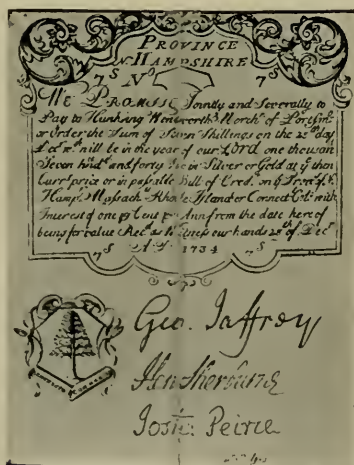 PROVINCE
N: HAMPSHIRE
7S No 7S
We PROMISE Jointly and Severally to
Pay to Hunking Wentworth Mercht of
or Order the Sum of Seven Shillings on the 25th day
Decr will be in the year of our LORD one thousand
Seven hundd and forty in Silver or Gold at ye then
Currt price or in passable Bill of Cred on ye Prove of N.
Hampr Massach Rhode Island or Connect Coly with
Interest of one pr Cent pr Ann from the date hereof
being for value Recd as Witness our hands 25th of Decr
7S A D 1734 7S
Geo. Jaffrey
Hen Sherburne
Josh: Peirce